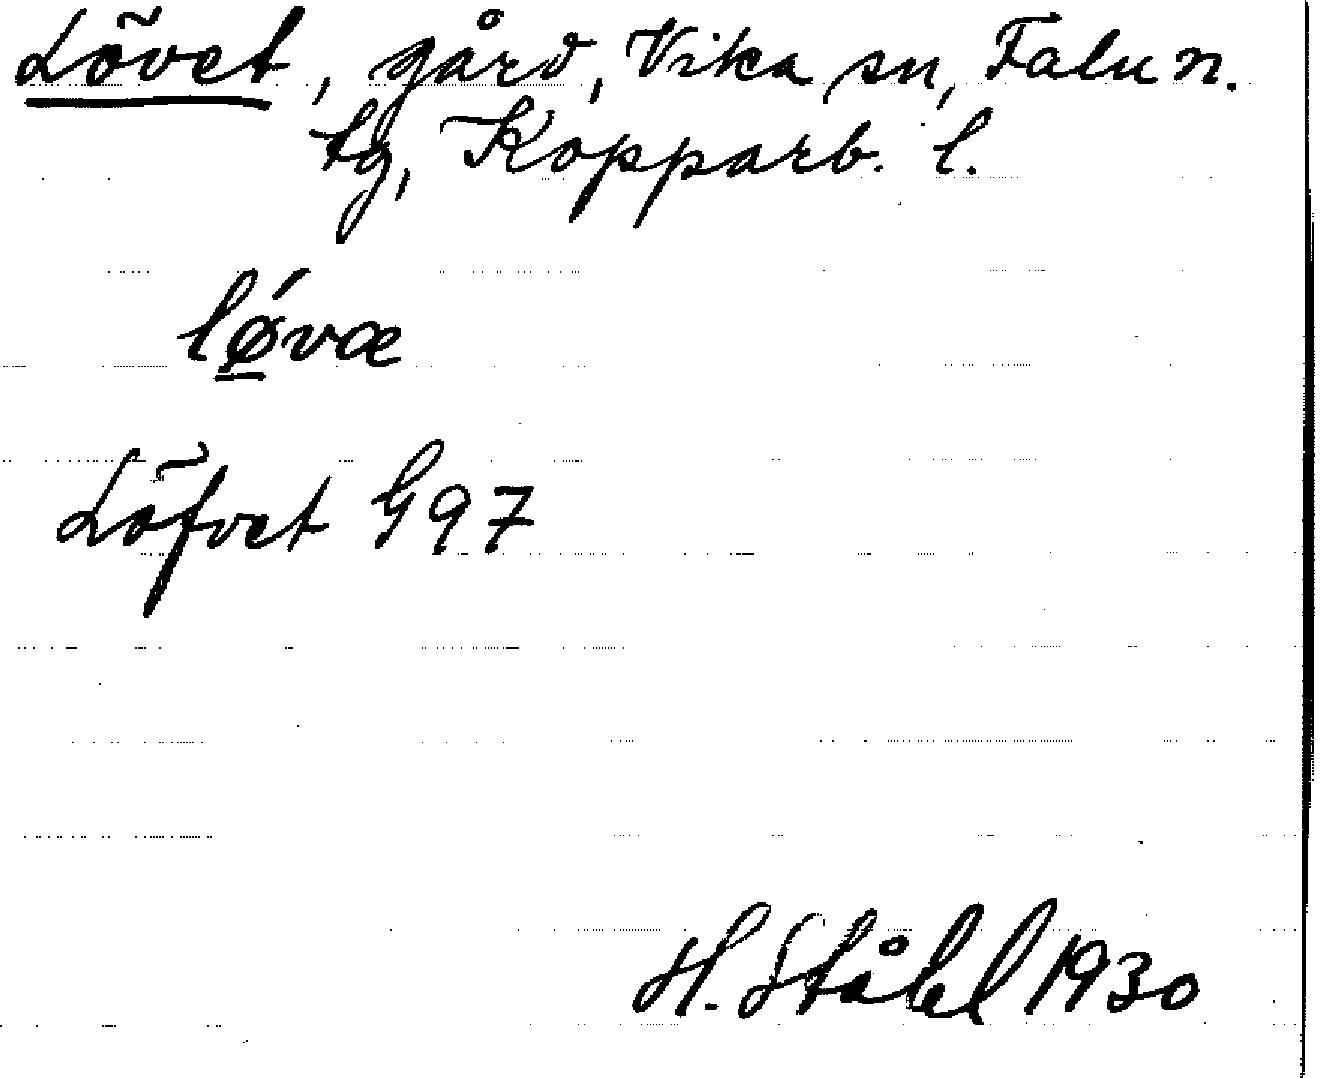 Lövet, gård, Vika sn, Falu n.
tg, Kopparb. l.
lǿvæ
Löfvet G 97
H. Ståhl 1930